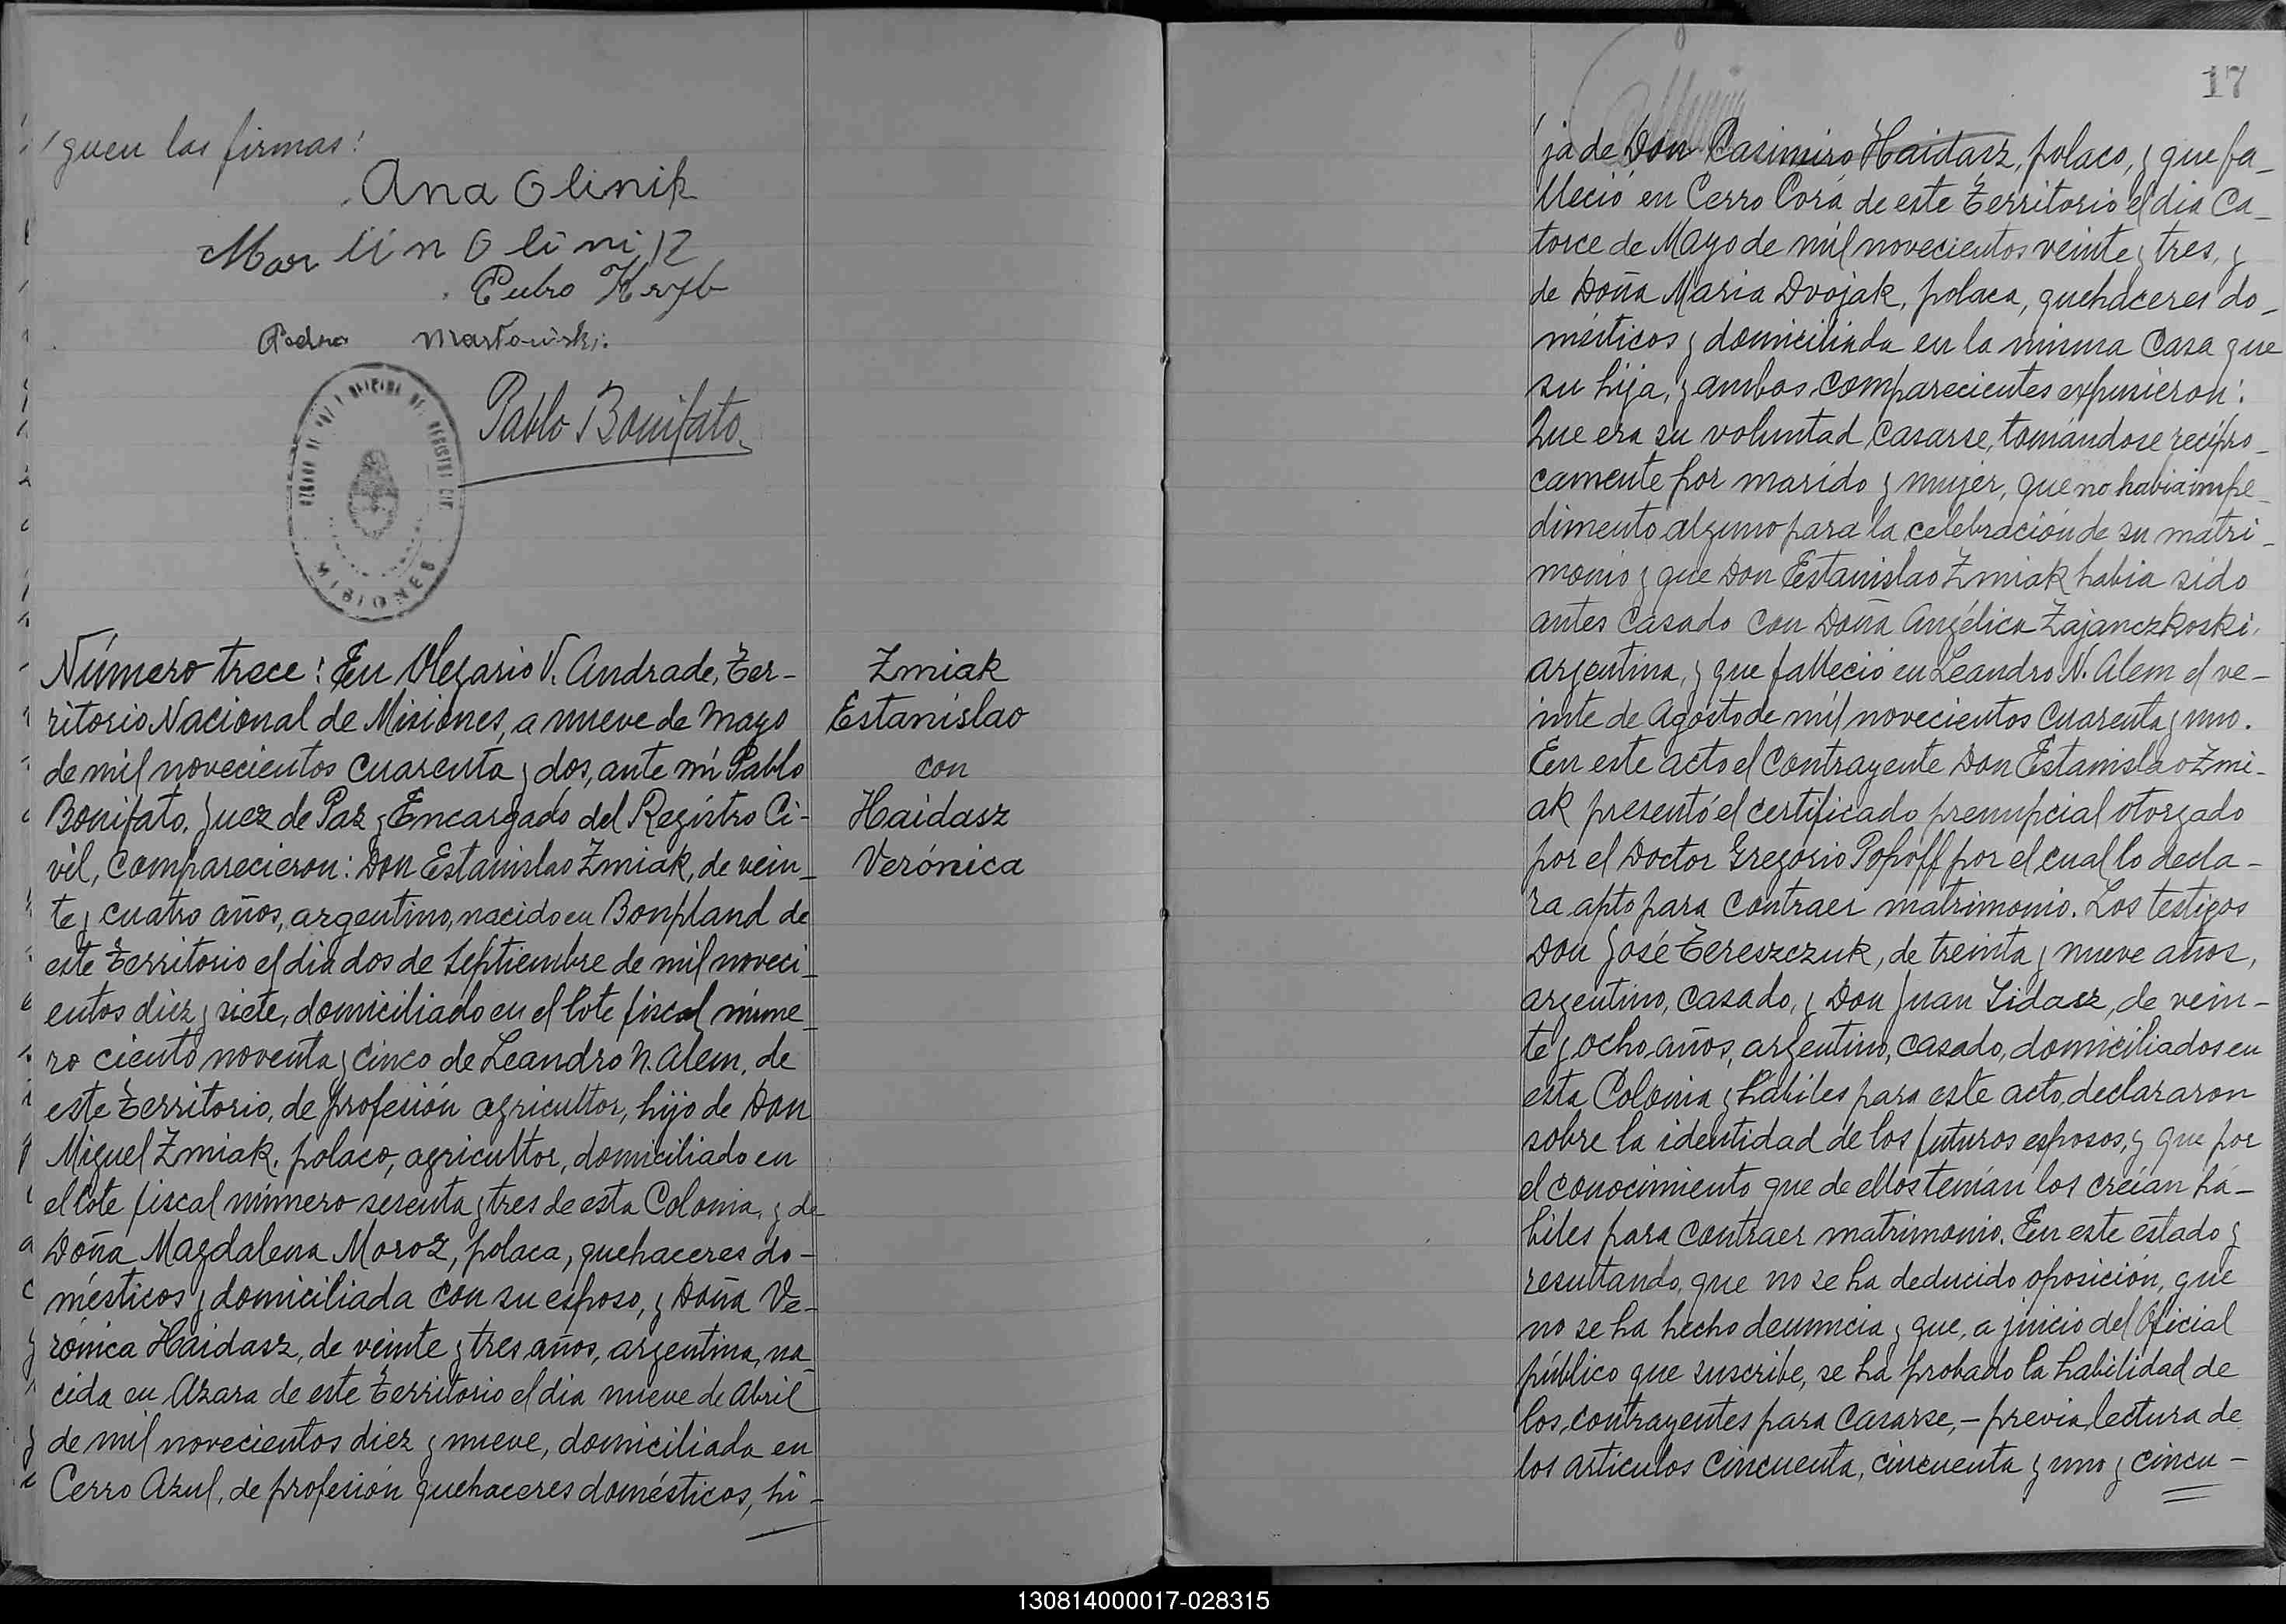 guen las firmas:
Ana Olinik
Martin Olinik
Pedro Kryb
Pedro Martowiski.
Pablo Bonifato
MISIONES
Número trece: En Olegario V. Andrade, Ter-
ritorio Nacional de Misiones, a nueve de Mayo
de mil novecientos cuarenta y dos, ante mí Pablo
Bonifato, Juez de Paz y Encargado del Registro Ci-
vil, comparecieron: Don Estanislao Zmiak, de vein-
te y cuatro años, argentino, nacido en Bonpland de
este Territorio el dia dos de Septiembre de mil noveci-
entos diez y siete, domiciliado en el lote fiscal núme-
ro ciento noventa y cinco de Leandro N. Alem, de
este Territorio, de profesión agricultor, hijo de Don
Miguel Zmiak, polaco, agricultor, domiciliado en
el lote fiscal número sesenta y tres de esta Colonia, y de
Doña Magdalena Moroz, polaca, quehaceres do-
mésticos y domiciliada con su esposo, y Doña Ve-
rónica Haidasz, de veinte y tres años, argentina, na-
cida en Azara de este Territorio el dia nueve de Abril
de mil novecientos diez y nueve, domiciliada en
Cerro Azul, de profesión quehaceres domésticos, hi-
Zmiak
Estanislao
con
Haidasz
Verónica
17
ja de Don Casimiro Haidasz, polaco, y que fa-
lleció en Cerro Corá de este Territorio el dia Ca-
torce de Mayo de mil novecientos veinte y tres, y
de Doña Maria Dvojak, polaca, quehaceres do-
mésticos y domiciliada en la misma casa que
su hija, y ambos comparecientes expusieron:
Que era su voluntad casarse, tomándose recípro-
camente por marido y mujer, que no habia impe-
dimento alguno para la celebración de su matri-
monio y que Don Estanislao Zmiak habia sido
antes casado con Doña Angélica Zajanczkoski,
argentina, y que falleció en Leandro N. Alem el ve-
inte de Agosto de mil novecientos cuarenta y uno.
En este acto el contrayente Don Estanislao Zmi-
ak presentó el certificado prenupcial otorgado
por el Doctor Gregorio Popoff por el cual lo decla-
ra apto para contraer matrimonio. Los testigos
Don José Tereszczuk, de treinta y nueve años,
argentino, casado, y Don Juan Lidasz, de vein-
te y ocho años, argentino, casado, domiciliados en
esta Colonia y hábiles para este acto, declararon
sobre la identidad de los futuros esposos, y que por
el conocimiento que de ellos tenían los creían há-
biles para contraer matrimonio. En este estado y
resultando, que no se ha deducido oposición, que
no se ha hecho denuncia y que, a juicio del Oficial
público que suscribe, se ha probado la habilidad de
los contrayentes para casarse, - previa lectura de
los artículos cincuenta, cincuenta y uno y cincu-
130814000017-028315